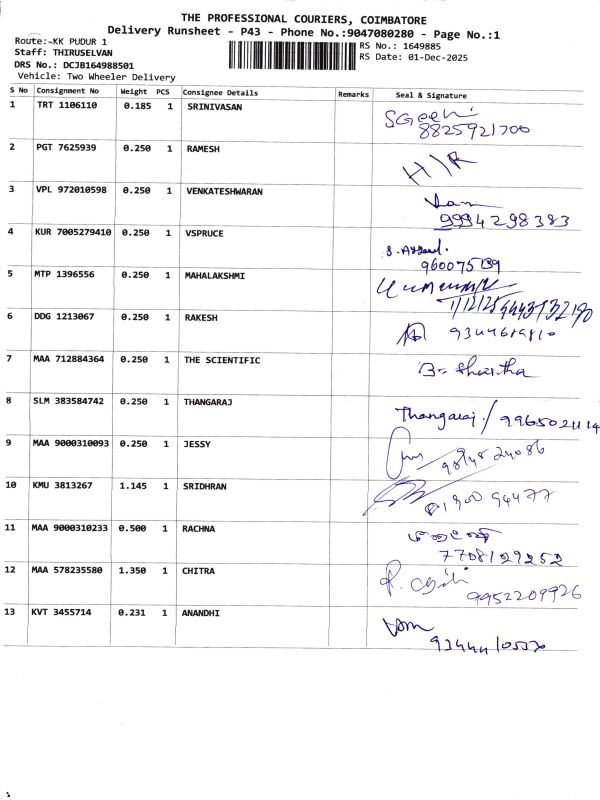 THE PROFESSIONAL COURIERS, COIMBATORE
Delivery Runsheet - P43 - Phone No.:9047080280 - Page No.:1
Route:-KK PUDUR 1
Staff: THIRUSELVAN
DRS No.: DCJB164988501
Vehicle: Two Wheeler Delivery
RS No.: 1649885
RS Date: 01-Dec-2025
S No Consignment No Weight PCS Consignee Details Remarks Seal & Signature
1 TRT 1106110 0.185 1 SRINIVASAN
8825921700
2 PGT 7625939 0.250 1 RAMESH
H/R
3 VPL 972010598 0.250 1 VENKATESHWARAN
9994298383
4 KUR 7005279410 0.250 1 VSPRUCE
960075139
5 MTP 1396556 0.250 1 MAHALAKSHMI
1/12/25
6 DDG 1213067 0.250 1 RAKESH
7 MAA 712884364 0.250 1 THE SCIENTIFIC
8 SLM 383584742 0.250 1 THANGARAJ
Thangaraj / 9965021114
9 MAA 9000310093 0.250 1 JESSY
10 KMU 3813267 1.145 1 SRIDHRAN
11 MAA 9000310233 0.500 1 RACHNA
7708129252
12 MAA 578235580 1.350 1 CHITRA
9952209926
13 KVT 3455714 0.231 1 ANANDHI